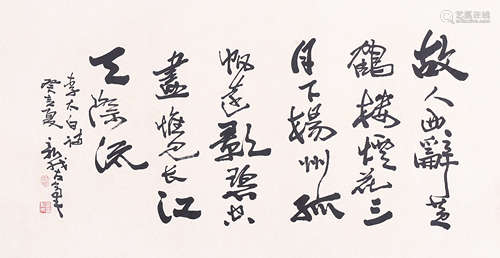 故人西辭黃
鶴樓煙花三
月下揚州孤
帆遠影碧空
盡惟見长江
天際流
李太白詩
癸亥夏